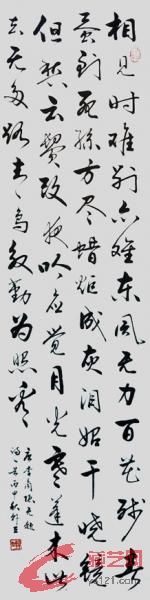 相见时难别亦难东风无力百花残春
蚕到死丝方尽蜡炬成灰泪始干晓镜
但愁云鬓改夜吟应觉月光寒蓬莱此
去无多路青鸟殷勤为探看
唐李商隐无题
诗一首丙申秋